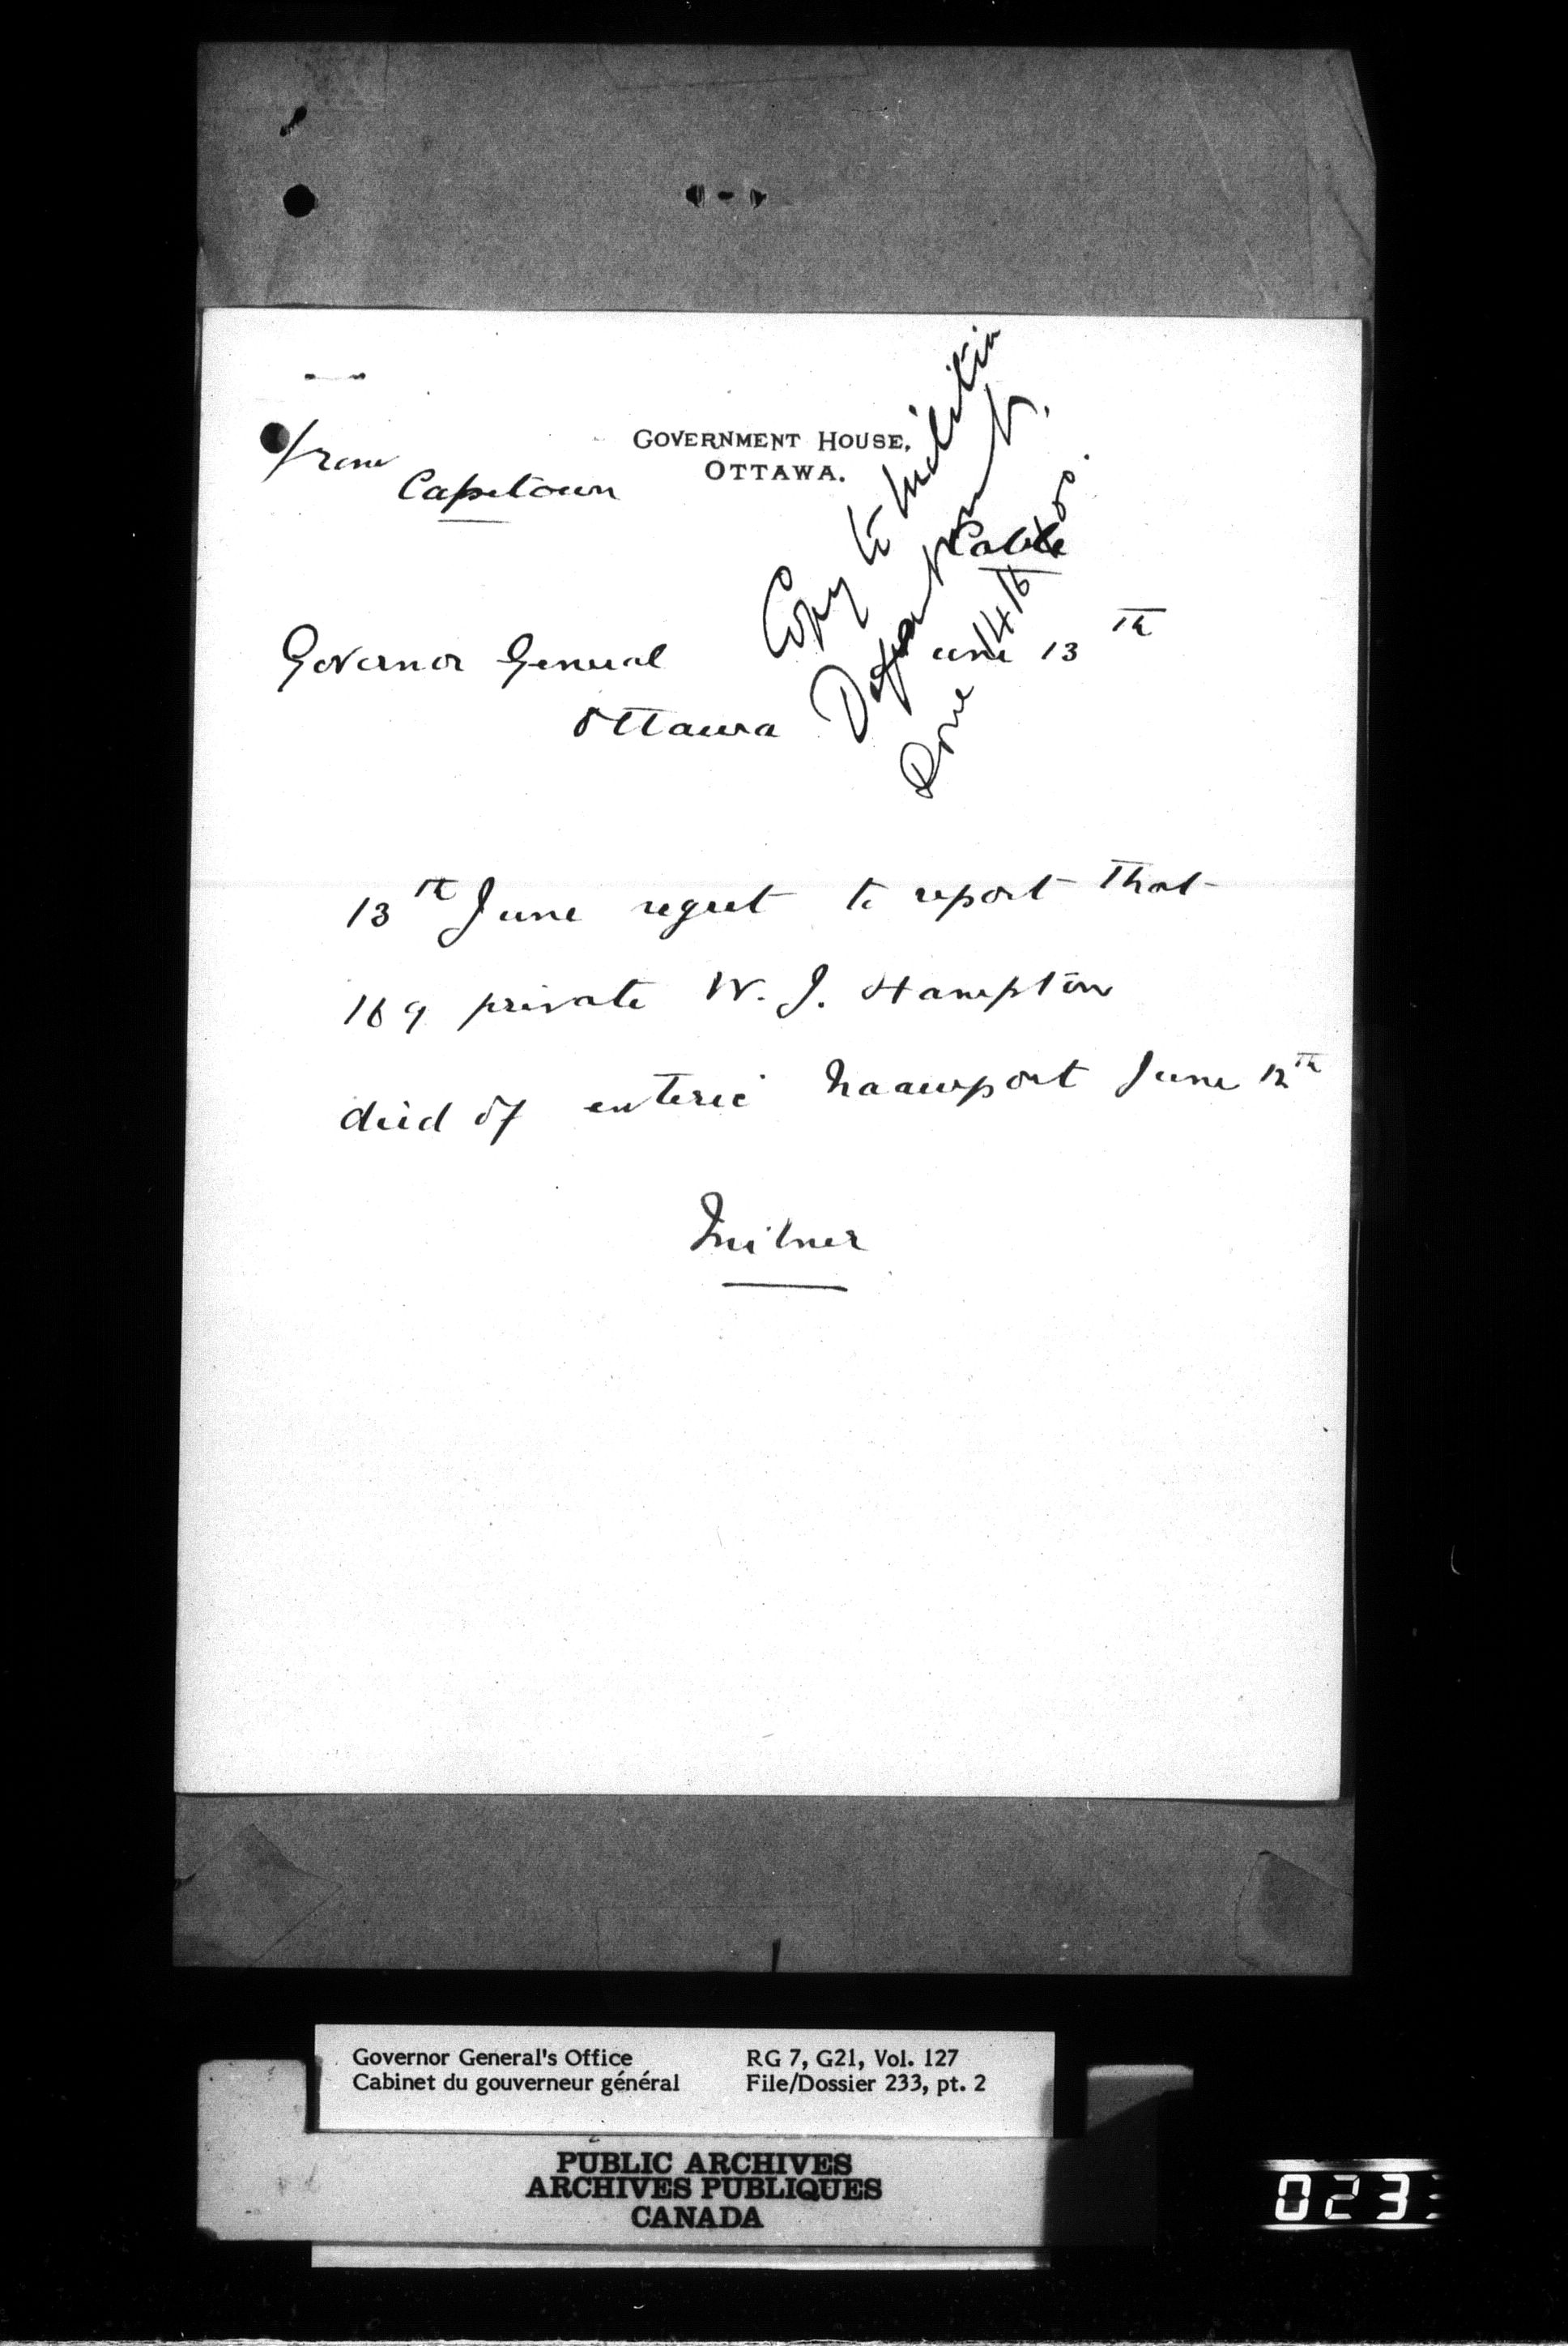 from
Capetown
GOVERNMENT HOUSE,
OTTAWA.
Copy to Militia
Department.
Done 14/6/00.
Cable
June 13th
Governor General
Ottawa
13th June regret to report that
169 private W. J. Hampton
died of enteric Naauwport June 12th
Milner
Governor General's Office
Cabinet du gouverneur général
RG 7, G21, Vol. 127
File/Dossier 233, pt. 2
PUBLIC ARCHIVES
ARCHIVES PUBLIQUES
CANADA
023